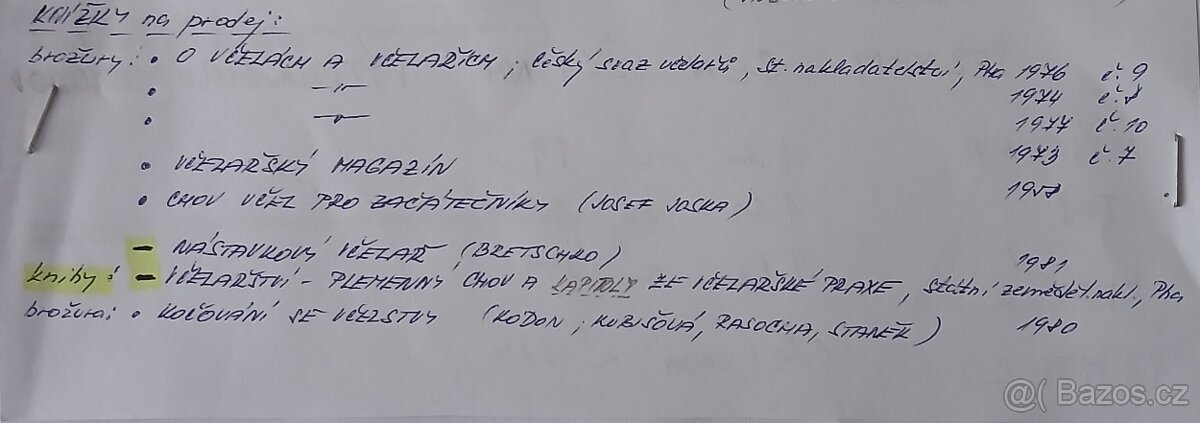 KNÍŽKY na prodej:
brožury: • O VČELÁCH A VČELAŘÍCH ; Český svaz včelařů, St. nakladatelství, Pha 1976 č. 9
• —"— 1974 č. 8
• —"— 1977 č. 10
1973 č. 7
• VČELAŘSKÝ MAGAZÍN
• CHOV VČEL PRO ZAČÁTEČNÍKY (JOSEF JOSKA)
- NÁSTAVKOVÝ VČELAŘ (BRETSCHKO)
1981
knihy: - VČELAŘSTVÍ - PLEMENNÝ CHOV A KAPITOLY ZE VČELAŘSKÉ PRAXE, Státní zeměděl. nakl., Pha
brožura: • KOČOVÁNÍ SE VČELSTVY (KODOŇ, KUBIŠOVÁ, RASOCHA, STANĚK) 1980
@( Bazos.cz